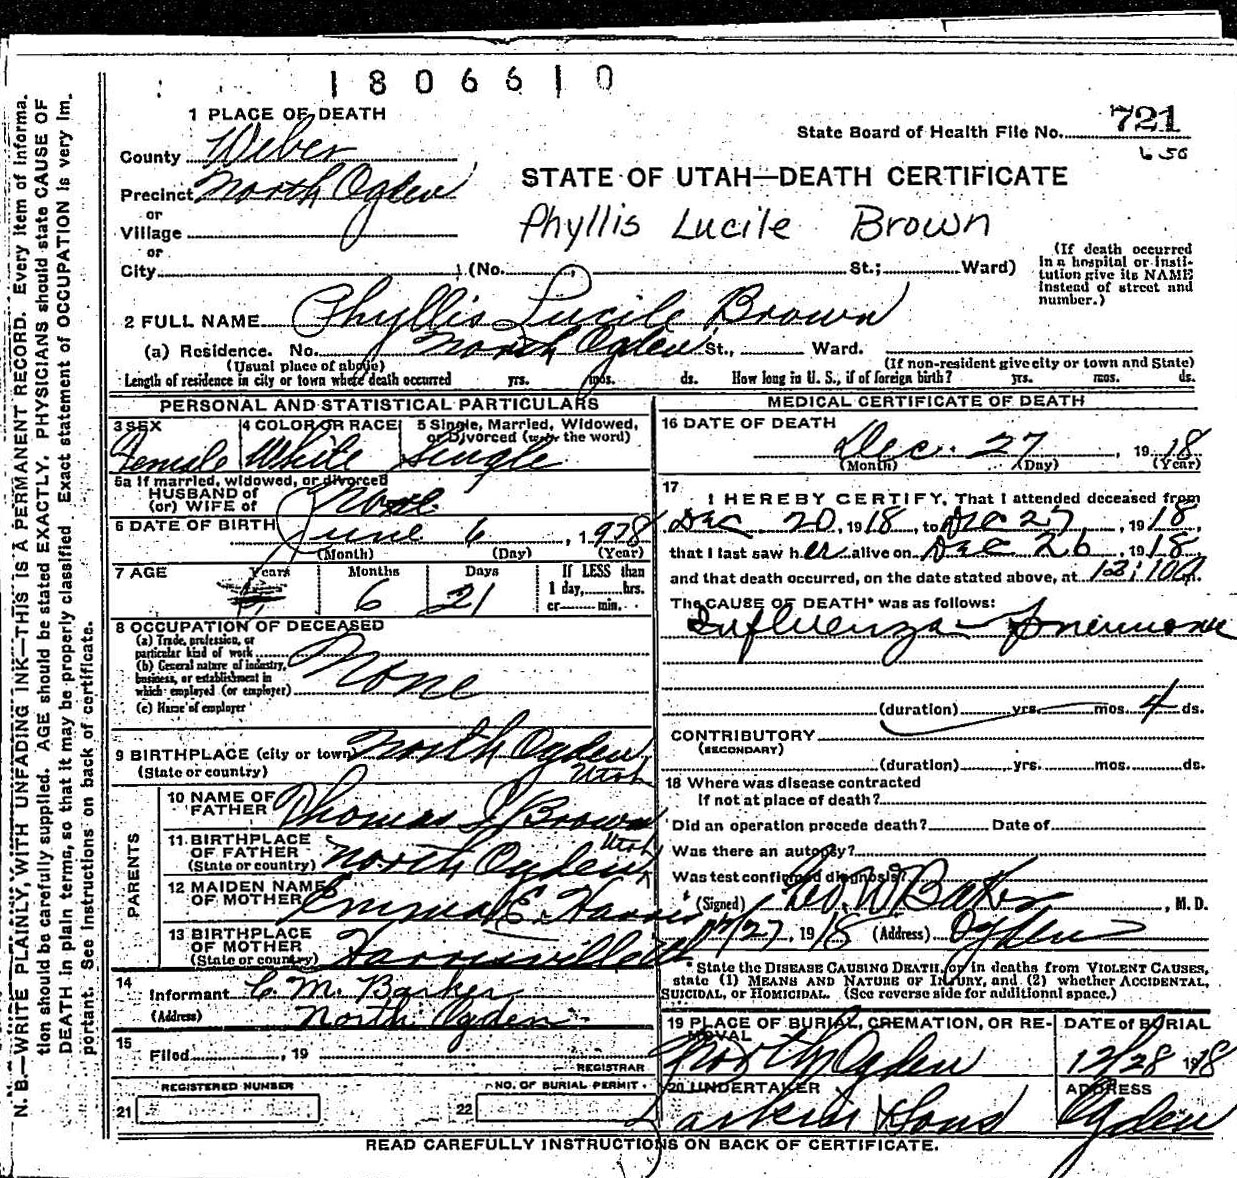 1806610
1 PLACE OF DEATH
State Board of Health File No. 721
656
County Weber
STATE OF UTAH—DEATH CERTIFICATE
Precinct North Ogden
or
Village
Phyllis Lucile Brown
or
City (No. St.; Ward)
(If death occurred in a hospital or insti-tution give its NAME instead of street and number.)
2 FULL NAME Phyllis Lucile Brown
(a) Residence. No. North Ogden St., Ward.
(Usual place of abode) (If non-resident give city or town and State)
Length of residence in city or town where death occurred yrs. mos. ds. How long in U. S., if of foreign birth? yrs. mos. ds.
PERSONAL AND STATISTICAL PARTICULARS
3 SEX 4 COLOR OR RACE 5 Single, Married, Widowed,
or Divorced (write the word)
Female White Single
5a If married, widowed, or divorced
HUSBAND of
(or) WIFE of None
6 DATE OF BIRTH June 6, 1
(Month) (Day) (Year)
7 AGE Years Months Days If LESS than
1 day, hrs.
or min.
6 21
8 OCCUPATION OF DECEASED
(a) Trade, profession, or
particular kind of work
(b) General nature of industry,
business, or establishment in
which employed (or employer)
None
(c) Name of employer
9 BIRTHPLACE (city or town) North Ogden
(State or country) Utah
PARENTS
10 NAME OF
FATHER Thomas Brown
11 BIRTHPLACE
OF FATHER
(State or country) North Ogden Utah
12 MAIDEN NAME
OF MOTHER Emma E. Harris
13 BIRTHPLACE
OF MOTHER
(State or country) Harrisville
14
Informant C. M. Barker
(Address) North Ogden
15
Filed , 19
REGISTRAR
REGISTERED NUMBER NO. OF BURIAL PERMIT
21 22
MEDICAL CERTIFICATE OF DEATH
16 DATE OF DEATH
Dec. 27, 1918
(Month) (Day) (Year)
17
I HEREBY CERTIFY, That I attended deceased from
Dec 20, 1918, to Dec 27, 1918,
that I last saw her alive on Dec 26, 1918
and that death occurred, on the date stated above, at 12:10 A.
The CAUSE OF DEATH* was as follows:
Influenza Pneumonia
(duration) yrs. mos. 4 ds.
CONTRIBUTORY
(SECONDARY)
(duration) yrs. mos. ds.
18 Where was disease contracted
If not at place of death?
Did an operation precede death? Date of
Was there an autopsy?
Was test confirmed diagnosis?
(Signed) W Baker, M. D.
12/27, 1918 (Address) Ogden
*State the DISEASE CAUSING DEATH, or in deaths from VIOLENT CAUSES,
state (1) MEANS AND NATURE OF INJURY, and (2) whether ACCIDENTAL,
SUICIDAL, or HOMICIDAL. (See reverse side for additional space.)
19 PLACE OF BURIAL, CREMATION, OR RE-
MOVAL
North Ogden
DATE of BURIAL
12/28 1918
20 UNDERTAKER
Larkin & Sons
ADDRESS
Ogden
READ CAREFULLY INSTRUCTIONS ON BACK OF CERTIFICATE.
N. B.—WRITE PLAINLY, WITH UNFADING INK—THIS IS A PERMANENT RECORD. Every item of informa-
tion should be carefully supplied. AGE should be stated EXACTLY. PHYSICIANS should state CAUSE OF
DEATH in plain terms, so that it may be properly classified. Exact statement of OCCUPATION is very im-
portant. See instructions on back of certificate.